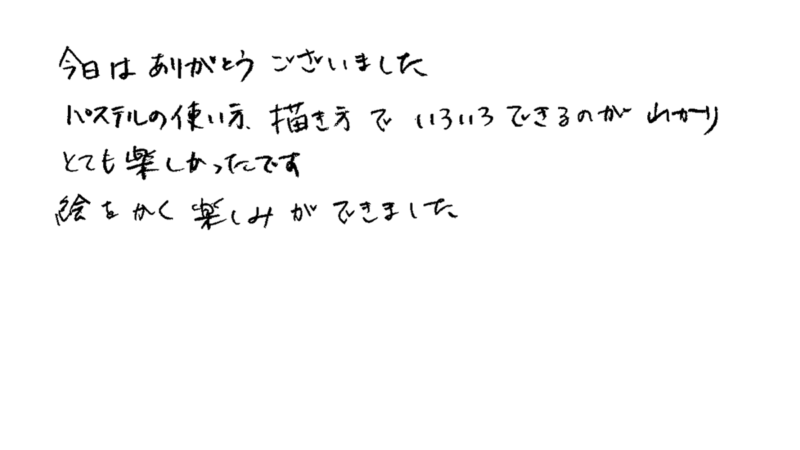 今日は ありがとう ございました
パステルの使い方、描き方で いろいろできるのが わかり
とても楽しかったです
絵をかく楽しみが できました